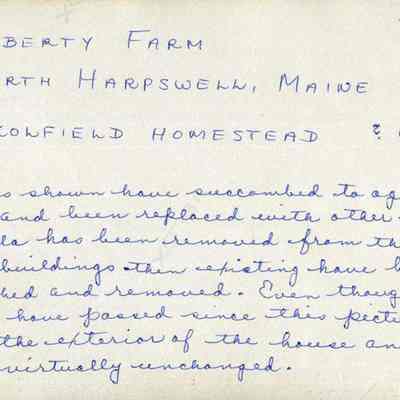 BERTY FARM
RTH HARPSWELL, MAINE
COLFIELD HOMESTEAD ?
s shown have succombed to ag
and been replaced with other
la has been removed from th
buildings then existing have b
hed and removed. Even thoug
have passed since this pictu
the exterior of the house an
virtually unchanged.